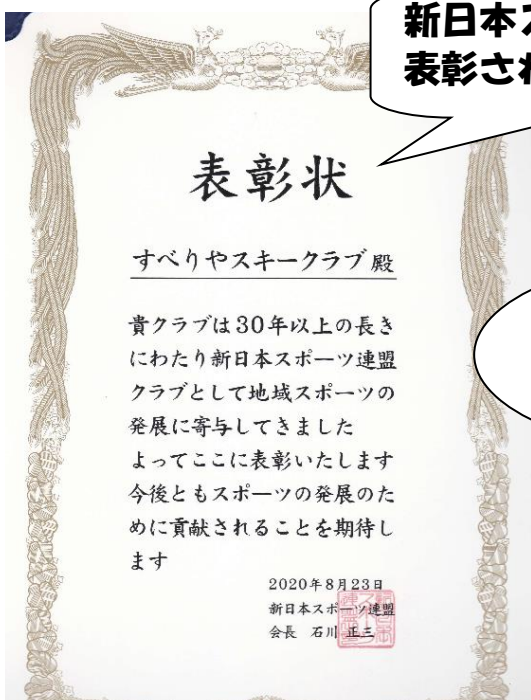 新日本ス
表彰され
表彰状
すべりやスキークラブ殿
貴クラブは30年以上の長き
にわたり新日本スポーツ連盟
クラブとして地域スポーツの
発展に寄与してきました
よってここに表彰いたします
今後ともスポーツの発展のた
めに貢献されることを期待し
ます
2020年8月23日
新日本スポーツ連盟
会長 石川 正三